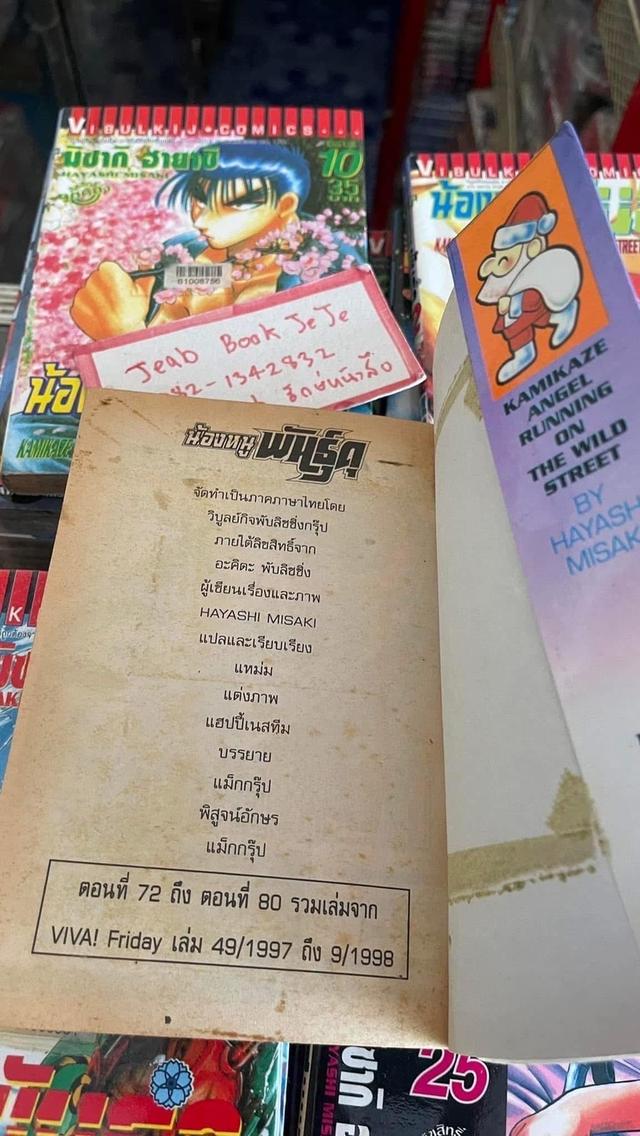 VIBULKIJ COMICS
มิซากิ ฮายาชิ
HAYASHI MISAKI
10
35
บาท
B1008756
Jeab Book JeJe
82-1342832
KAMIKAZE
VIBULKIJ COMICS
น้อง
STREET
KAMIKAZE
ANGEL
RUNNING
ON
THE WILD
STREET
BY
HAYASHI
MISAK
น้องหนูพันธุ์ดุ
จัดทำเป็นภาคภาษาไทยโดย
วิบูลย์กิจพับลิชชิ่งกรุ๊ป
ภายใต้ลิขสิทธิ์จาก
อะคิตะ พับลิชชิ่ง
ผู้เขียนเรื่องและภาพ
HAYASHI MISAKI
แปลและเรียบเรียง
แหม่ม
แต่งภาพ
แฮปปี้เนสทีม
บรรยาย
แม็กกรุ๊ป
พิสูจน์อักษร
แม็กกรุ๊ป
ตอนที่ 72 ถึง ตอนที่ 80 รวมเล่มจาก
VIVA! Friday เล่ม 49/1997 ถึง 9/1998
25
HAYASHI MIS